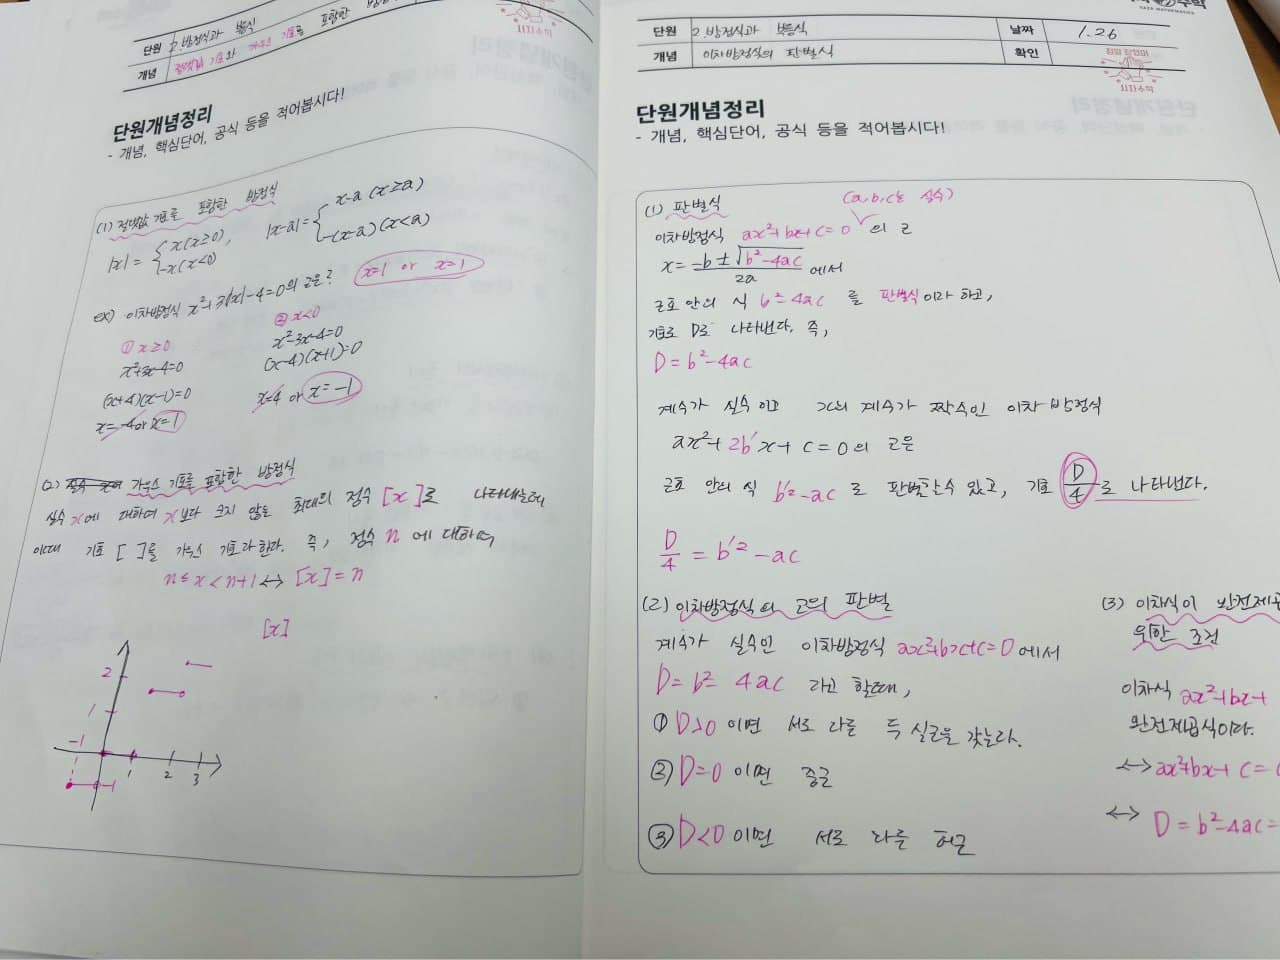 단원 2. 방정식과 부등식
개념 절댓값 기호와 가우스 기호를 포함한 방
단원개념정리
- 개념, 핵심단어, 공식 등을 적어봅시다!
(1) 절댓값 기호를 포함한 방정식
|x| = { x (x≥0), -x (x<0)
|x-a| = { x-a (x≥a) -(x-a) (x<a)
ex) 이차방정식 x²+3|x|-4=0의 근은? x=1 or x=1
① x≥0
x²+3x-4=0
(x+4)(x-1)=0
x=-4 or x=1
② x<0
x²-3x-4=0
(x-4)(x+1)=0
x=4 or x=-1
(2) 가우스 기호를 포함한 방정식
실수 x에 대하여 x보다 크지 않은 최대의 정수 [x]로 나타내는데
이때 기호 [ ]을 가우스 기호라 한다. 즉, 정수 n에 대하여
n≤x<n+1 ↔ [x]=n
[x]
2
1
-1
1 2 3
-1
단원 2. 방정식과 부등식 날짜 1.26
개념 이차방정식의 판별식 확인
시자수학
단원개념정리
- 개념, 핵심단어, 공식 등을 적어봅시다!
(1) 판별식 (a,b,c는 실수)
이차방정식 ax²+bx+c=0 의 근
x = -b ± √b²-4ac / 2a 에서
근호 안의 식 b²-4ac 를 판별식이라 하고,
기호로 D로 나타낸다. 즉,
D = b²-4ac
계수가 실수이고 x의 계수가 짝수인 이차방정식
ax²+2b'x+c=0의 근은
근호 안의 식 b'²-ac 로 판별할 수 있고, 기호 D/4로 나타낸다.
D/4 = b'²-ac
(2) 이차방정식의 근의 판별
계수가 실수인 이차방정식 ax²+bx+c=0에서
D=b²-4ac 라고 할때,
① D>0 이면 서로 다른 두 실근을 갖는다.
② D=0 이면 중근
③ D<0 이면 서로 다른 허근
(3) 이차식이 완전제곱
위한 조건
이차식 ax²+bx+
완전제곱식이다.
↔ ax²+bx+c=
↔ D=b²-4ac=